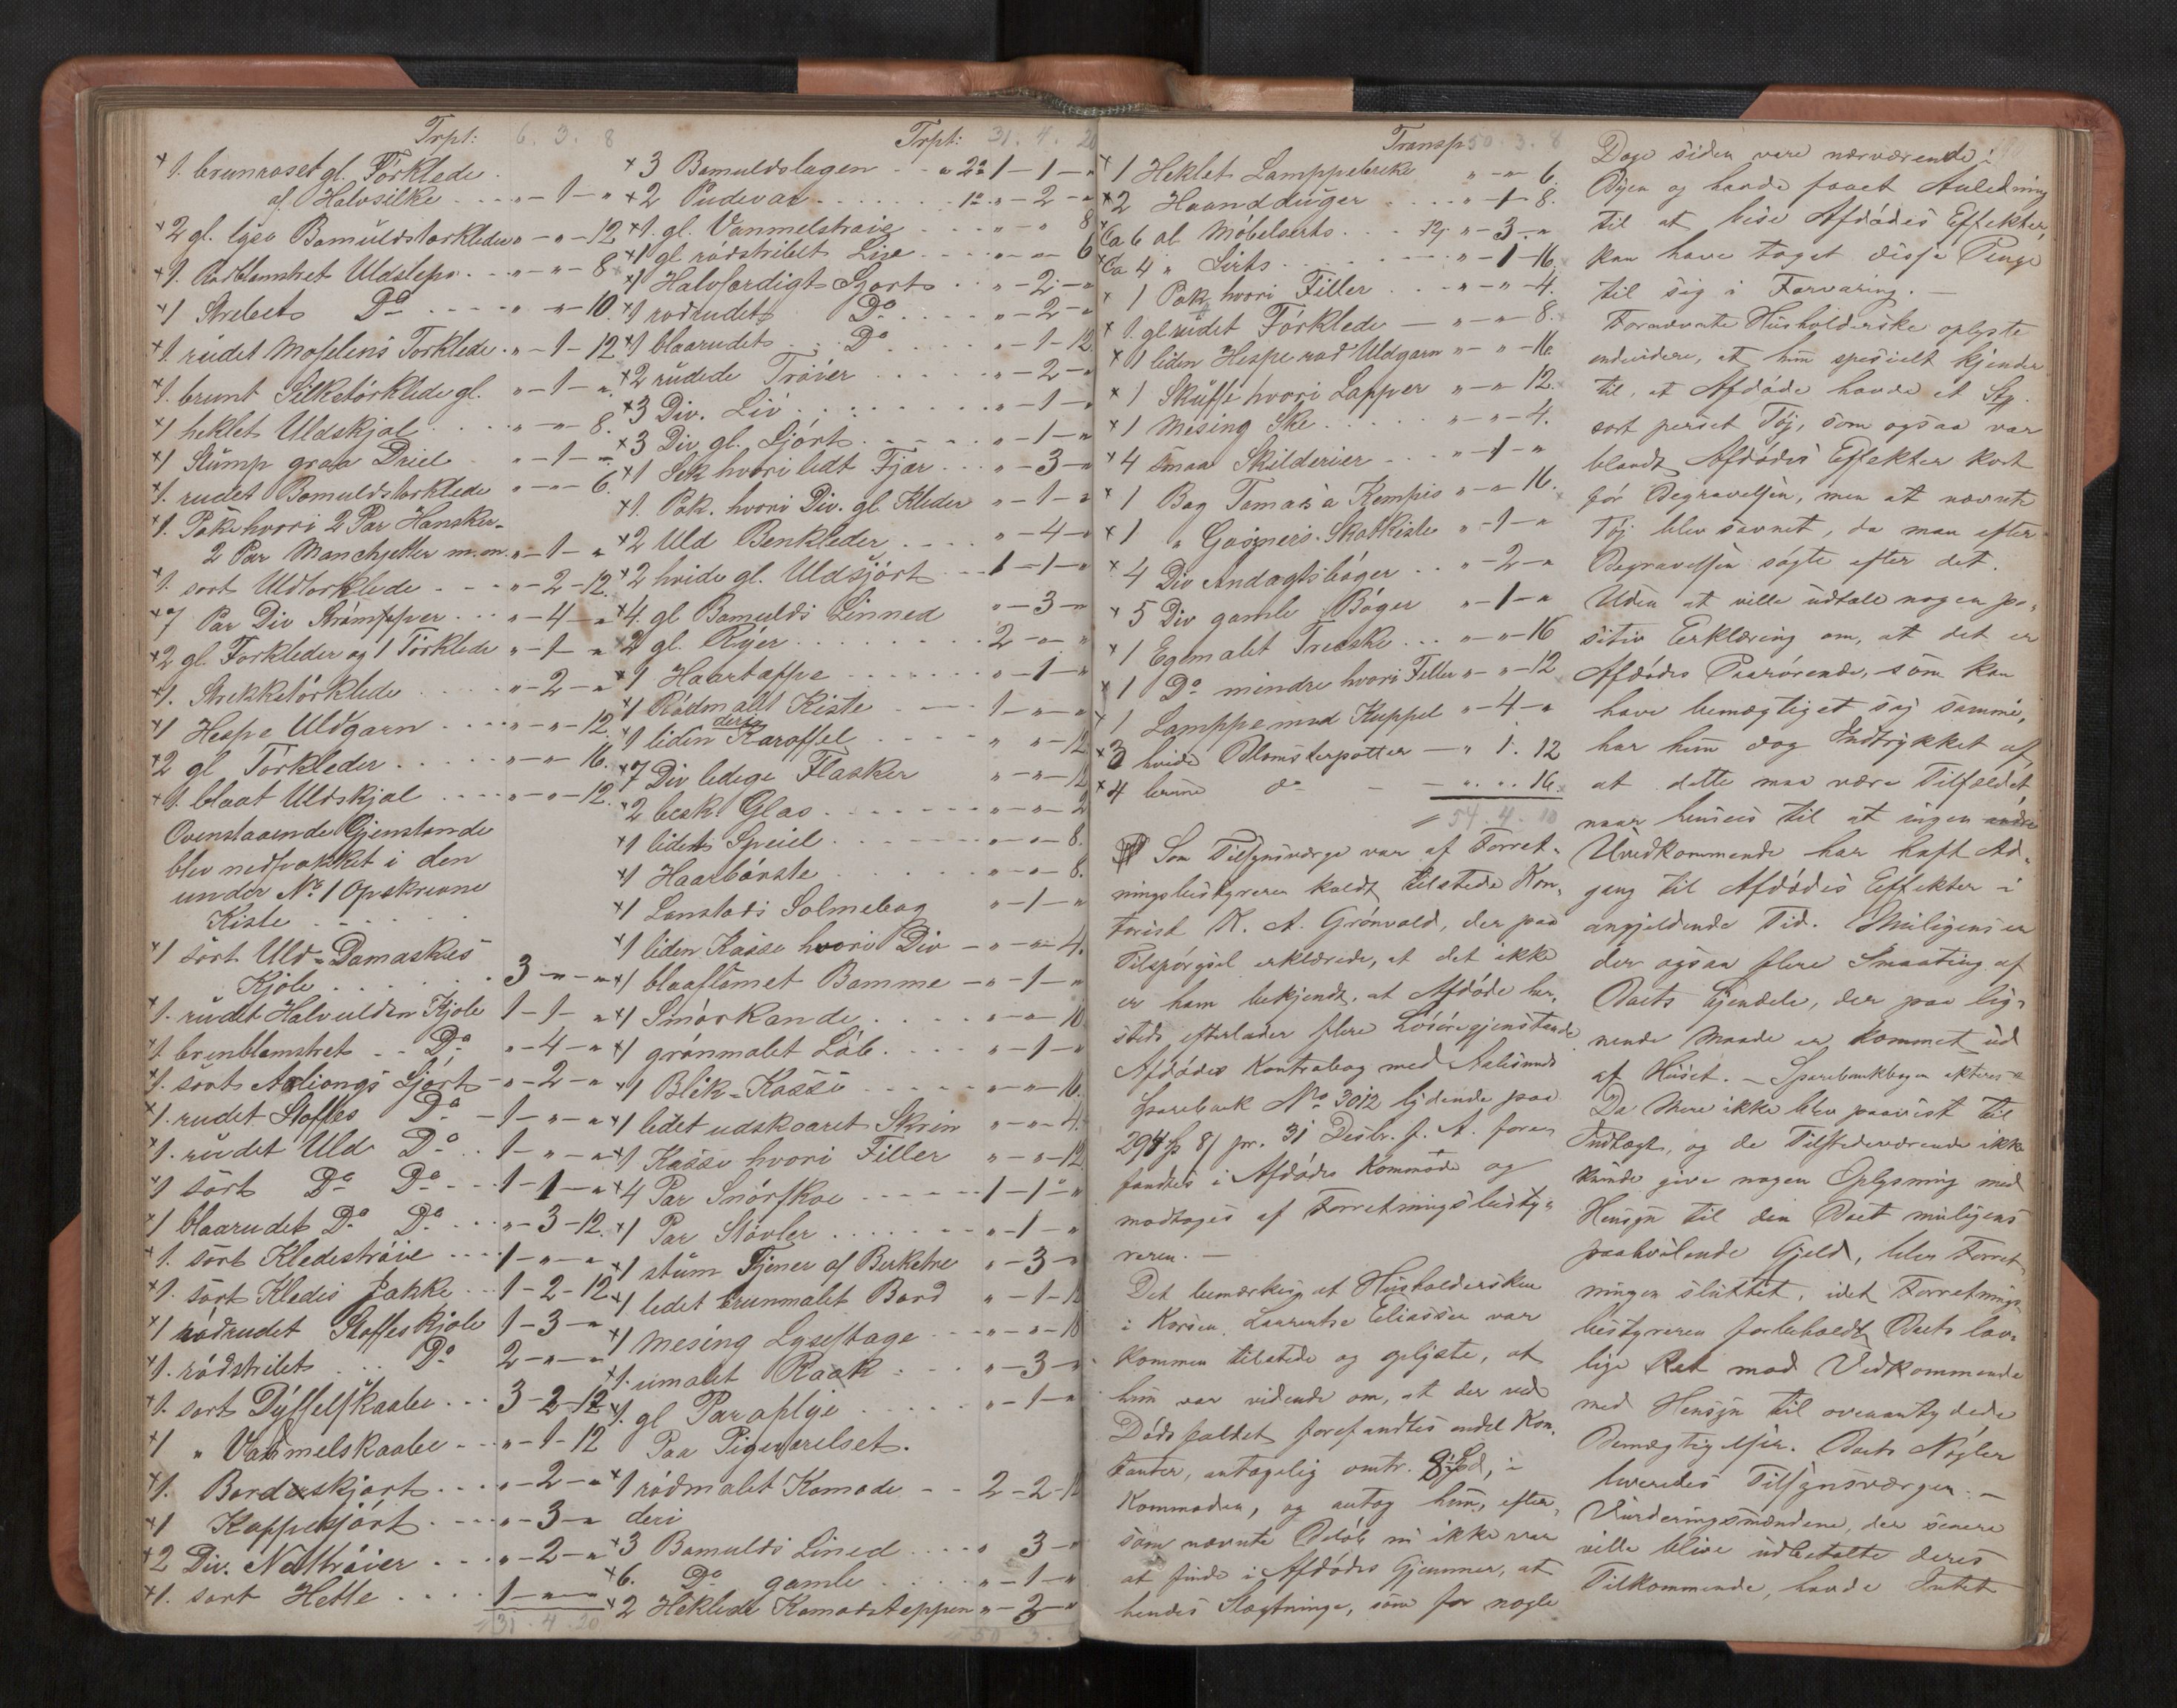 Trpt: 6. 3. 8
× 1. brunroset gl. Tørklede
af Halvsilke - - - „ - 1 - „
× 2 gl. lyse Bomuldstørkleder „ - „ - 12
× 1. Rødblomstret Uldsleps - - „ - „ - 8
× 1 Strebets Do - - - - „ - „ - 10.
× 1. rudet Moselins Tørklede - „ - 1 - 12
× 1. brunt Silketørklede gl. „ - 1 - „
× 1 heklet Uldskjal - - - „ - „ - 8.
× 1 Stump graa Driel - - „ - 1 - „
× 1. rudet Bomuldstørklede „ - „ - 6.
× 1. Pakke hvori 2 Par Hansker -
2 Par Manchjetter m.m. „ - 1 - „
× 1. sort Uldtørklede - - - „ - 2 - 12.
× 7 Par Div Strømpper - - „ - 4 - „
× 2 gl. Forkleder og 1 Tørklede „ - 1 - „
× 1. Strikketørklede - - - „ - 2 - „
× 1 Hespe Uldgarn - - - - „ - „ - 12.
× 2 gl Tørkleder - - - - „ - „ - 16.
× 1. blaat Uldskjal - - - - „ - „ - 12.
Ovenstaaende Gjenstande
blev nedpakket i den
under No 1 Opskrevne
Kiste - - - - -
× 1 sort Uld-Damaskes
Kjole - - - - - 3 - „ - „
× 1. rudet Halvulden Kjole 1 - 1 - „
× 1. brunblomstret - - Do „ - 4 - „
× 1. sort Skjørt - „ - 2 - „
× 1. rudet Stoffes Do - 1 - „ - „
× 1. rudet Uld Do - - 1 - „ - „
× 1 sort Do Do - - - 1 - 1 - „
× 1 blaarudet Do Do - - „ - 3 - 12.
× 1. sort Kledestrøie - - - 1 - „ - „
× 1. sort Kledes Jakke - - 1 - 2 - 12
× 1 rødrudet Stoffeskjole 1 - 3 - „
× 1. rødstribet - - Do 2 - „ - „
× 1. sort Dyffelskaabe - - 3 - 2 - 12
× 1 „ Vadmelskaabe - - „ - 1 - 12
× 1. Bordeskjørt - - - „ - 2 - „
× 1 Kappeskjørt - - - „ - 3 - „
× 2 Div. Nattrøier - - - „ - 2 - „
× 1. sort Hette - - - 1 - „ - „
31. 4. 20
Trpt: 31. 4. 20
× 3 Bomuldslagen - - a 2a 1 - 1 - „
× 2 Pudevar - - - - - 1a „ - 2 - „
× 1. gl. Vanmelstrøie - - - „ - „ 8
× 1 gl rødstribet Lise - - - „ - „ 6
× 1 Halvferdigt Sjorts - - „ - 2 - „
× 1 rødrudets Do - - - „ - 2 - „
× 1 blaarudets - - Do „ - 1 - 12
× 2 rudede Trøier - - - - „ - 2 - „
× 3 Div. Liv - - - - - „ - 1 - „
× 3 Div gl. Sjørt - - - - „ - 1 - „
× 1 Sek hvori lidt Fjær - - „ - 3 - „
× 1. Pak. hvori Div. gl. Kleder „ - 1 - „
× 2 Uld Benkleder - - - „ - 4 - „
× 2 hvide gl. Uldsjørt - - 1 - 1 - „
× 4. gl Bomulds Linned „ - 3 - „
× 2 gl. Ryer - - - - - 2 - „ - „
× 1 Haartappe - - - - „ - 1 - „
× 1 Rødmalt Kiste - - - 1 - „ - „
deri
× 1 liden Karoffel - - - „ „ - 12
× 7 Div ledige Flasker „ - „ - 12
× 2 besk. Glas - - - - „ - „ - 2
× 1 lidets Speiel - - - - „ - „ - 8.
× 1 Haarbørste - - - - - „ - „ - 8.
× 1 Lanstads Salmebog „ - 1 - „
× 1 liden Kasse hvori Div - „ - „ - 4.
× 1 blaaflamet Bomme - „ - 1 - „
× 1 Smørkande - - - - „ - „ - 10
× 1 grønmalet Løb - - - „ - 1 - „
× 1 Blik-Kasse - - - - „ - „ - 16.
× 1 lidet udskaaret Skrin „ - „ - 4.
× 1 Kasse hvori Filler „ - „ - 12.
× 4 Par Snørskoe - - - - 1 - 1 - „
× 1 Par Støvler - - - - - „ - 1 - „
× 1 stum Tjener af Berketre „ - 3 - „
× 1 lidet brunmalet Bord „ - 1 - 12
× 1 Mesing Lysestage - - - „ - „ - 18
× 1. umalet Raak - - - „ - 3 - „
× 1. gl Paraplye - - - - „ - 1 - „
Paa Pigeværelset.
× 1 rødmalet Komode - - 2 - 2 - 12
deri
× 3 Bomulds Lined - - - „ 3 - „
× 6. Do gamle - - - „ - 1 - „
× 2 Heklede Komodeteppen „ - 3 - „
50 3.
Transp 50. 3. 8
× 1 Heklet Lamppebrikke „ - „ 6.
× 2 Haandduger - - - „ - 1 - 8.
× Ca 6 al Møbelserts - - 12j „ - 3 - „
× Ca 4 „ Sirts - - - - „ - 1 - 16.
× 1 Pak hvori Filler - - „ - „ - 4.
× 1. gl rudet Tørklede - „ - „ - 8.
× 1 liden Hespe rød Uldgarn „ - „ - 16.
× 1 Skuffe hvori Lapper „ - „ 12.
× 1 Mesing Ske - - - - „ - „ - 4.
× 4 smaa Skilderier - - - „ - 1 - „
× 1 Bog Tomas a Kempis „ - „ 16.
× 1 „ Gosners Skatkiste „ - 1 - „
× 4 Div Andagtsbøger - - „ - 2 - „
× 5 Div gamle Bøger „ - 1 - „
× 1 Egemalet Treeske - - - „ - „ - 16
× 1 Do mindre hvori Filler „ - „ - 12
× 1 Lamppe med Kuppel „ - 4 - „
× 3 hvide Blomsterpotter - „ 1. 12
× 4 brune do - - „ . „ . 16.
54. 4. 10
Som Tilsynsværge var af Forret-
ningsbestyreren kaldt tilstede Kon-
torist K. A. Grønvold, der paa
Tilspørgsel erklærede, at det ikke
er ham bekjendt, at Afdøde her-
steds efterlader flere Løsøregjenstande
Afdødes Kontrabog med Aalesunds
Sparebank No 3012 lydende paa
294 ß 8/ pr. 31 Desbr. f. A. fore-
fandtes i Afdødes Kommode og
modtoges af Forretningsbesty-
reren. -
Det bemærkes, at Husholdersken
i Korsen, Laurentse Eliassen var
kommen tilstede og oplyste, at
hun var vidende om, at der ved
Dødsfaldet forefandtes endel Kon-
tanter, antagelig omtr. 8 Spd, i
Kommoden, og antog hun, efter-
som nævnte Beløb nu ikke var
at finde i Afdødes Gjemmer, at
hendes Slægtninge, som for nogle
Dage siden vare nærværende i
Byen og havde faaet Anledning
til at bese Afdødes Effekter,
kan have taget disse Penge
til sig i Forvaring. -
Fornævnte Husholderske oplyste
endvidere, at hun spesielt kjender
til, at Afdøde havde et Stk.
sort perset Tøj, som ogsaa var
blandt Afdødes Effekter kort
før Begravelsen, men at nævnte
Tøj blev savnet, da man efter
Begravelsen søgte efter det.
Uden at ville udtale nogen po-
sitiv Erklæring om, at det er
Afdødes Paarørende, som kan
have bemægtiget sig samme,
har hun dog Indtrykket af,
at dette maa være Tilfældet,
naar henses til at ingen andre
Uvedkommende har havt Ad-
gang til Afdødes Effekter i
angjeldende Tid. Muligens er
der ogsaa flere Smaating af
Boets Ejendele, der paa lig-
nende Maade er kommet ud
af Huset. - Sparebankbogen
Da Mere ikke blev paavist til
Indtægt, og de Tilstedeværende ikke
kunde give nogen Oplysning med
Hensyn til den Boet muligens
paahvilende Gjeld, blev Forret-
ningen sluttet, idet Forretnings-
bestyreren forbeholdt Boets lov-
lige Ret mod Vedkommende
med Hensyn til ovenantydede
Bemægtigelser. Boets Nøgler
leveredes Tilsynsværgen. -
Vurderingsmændene, der senere
ville blive udbetalte deres
Tilkommende, havde Intet